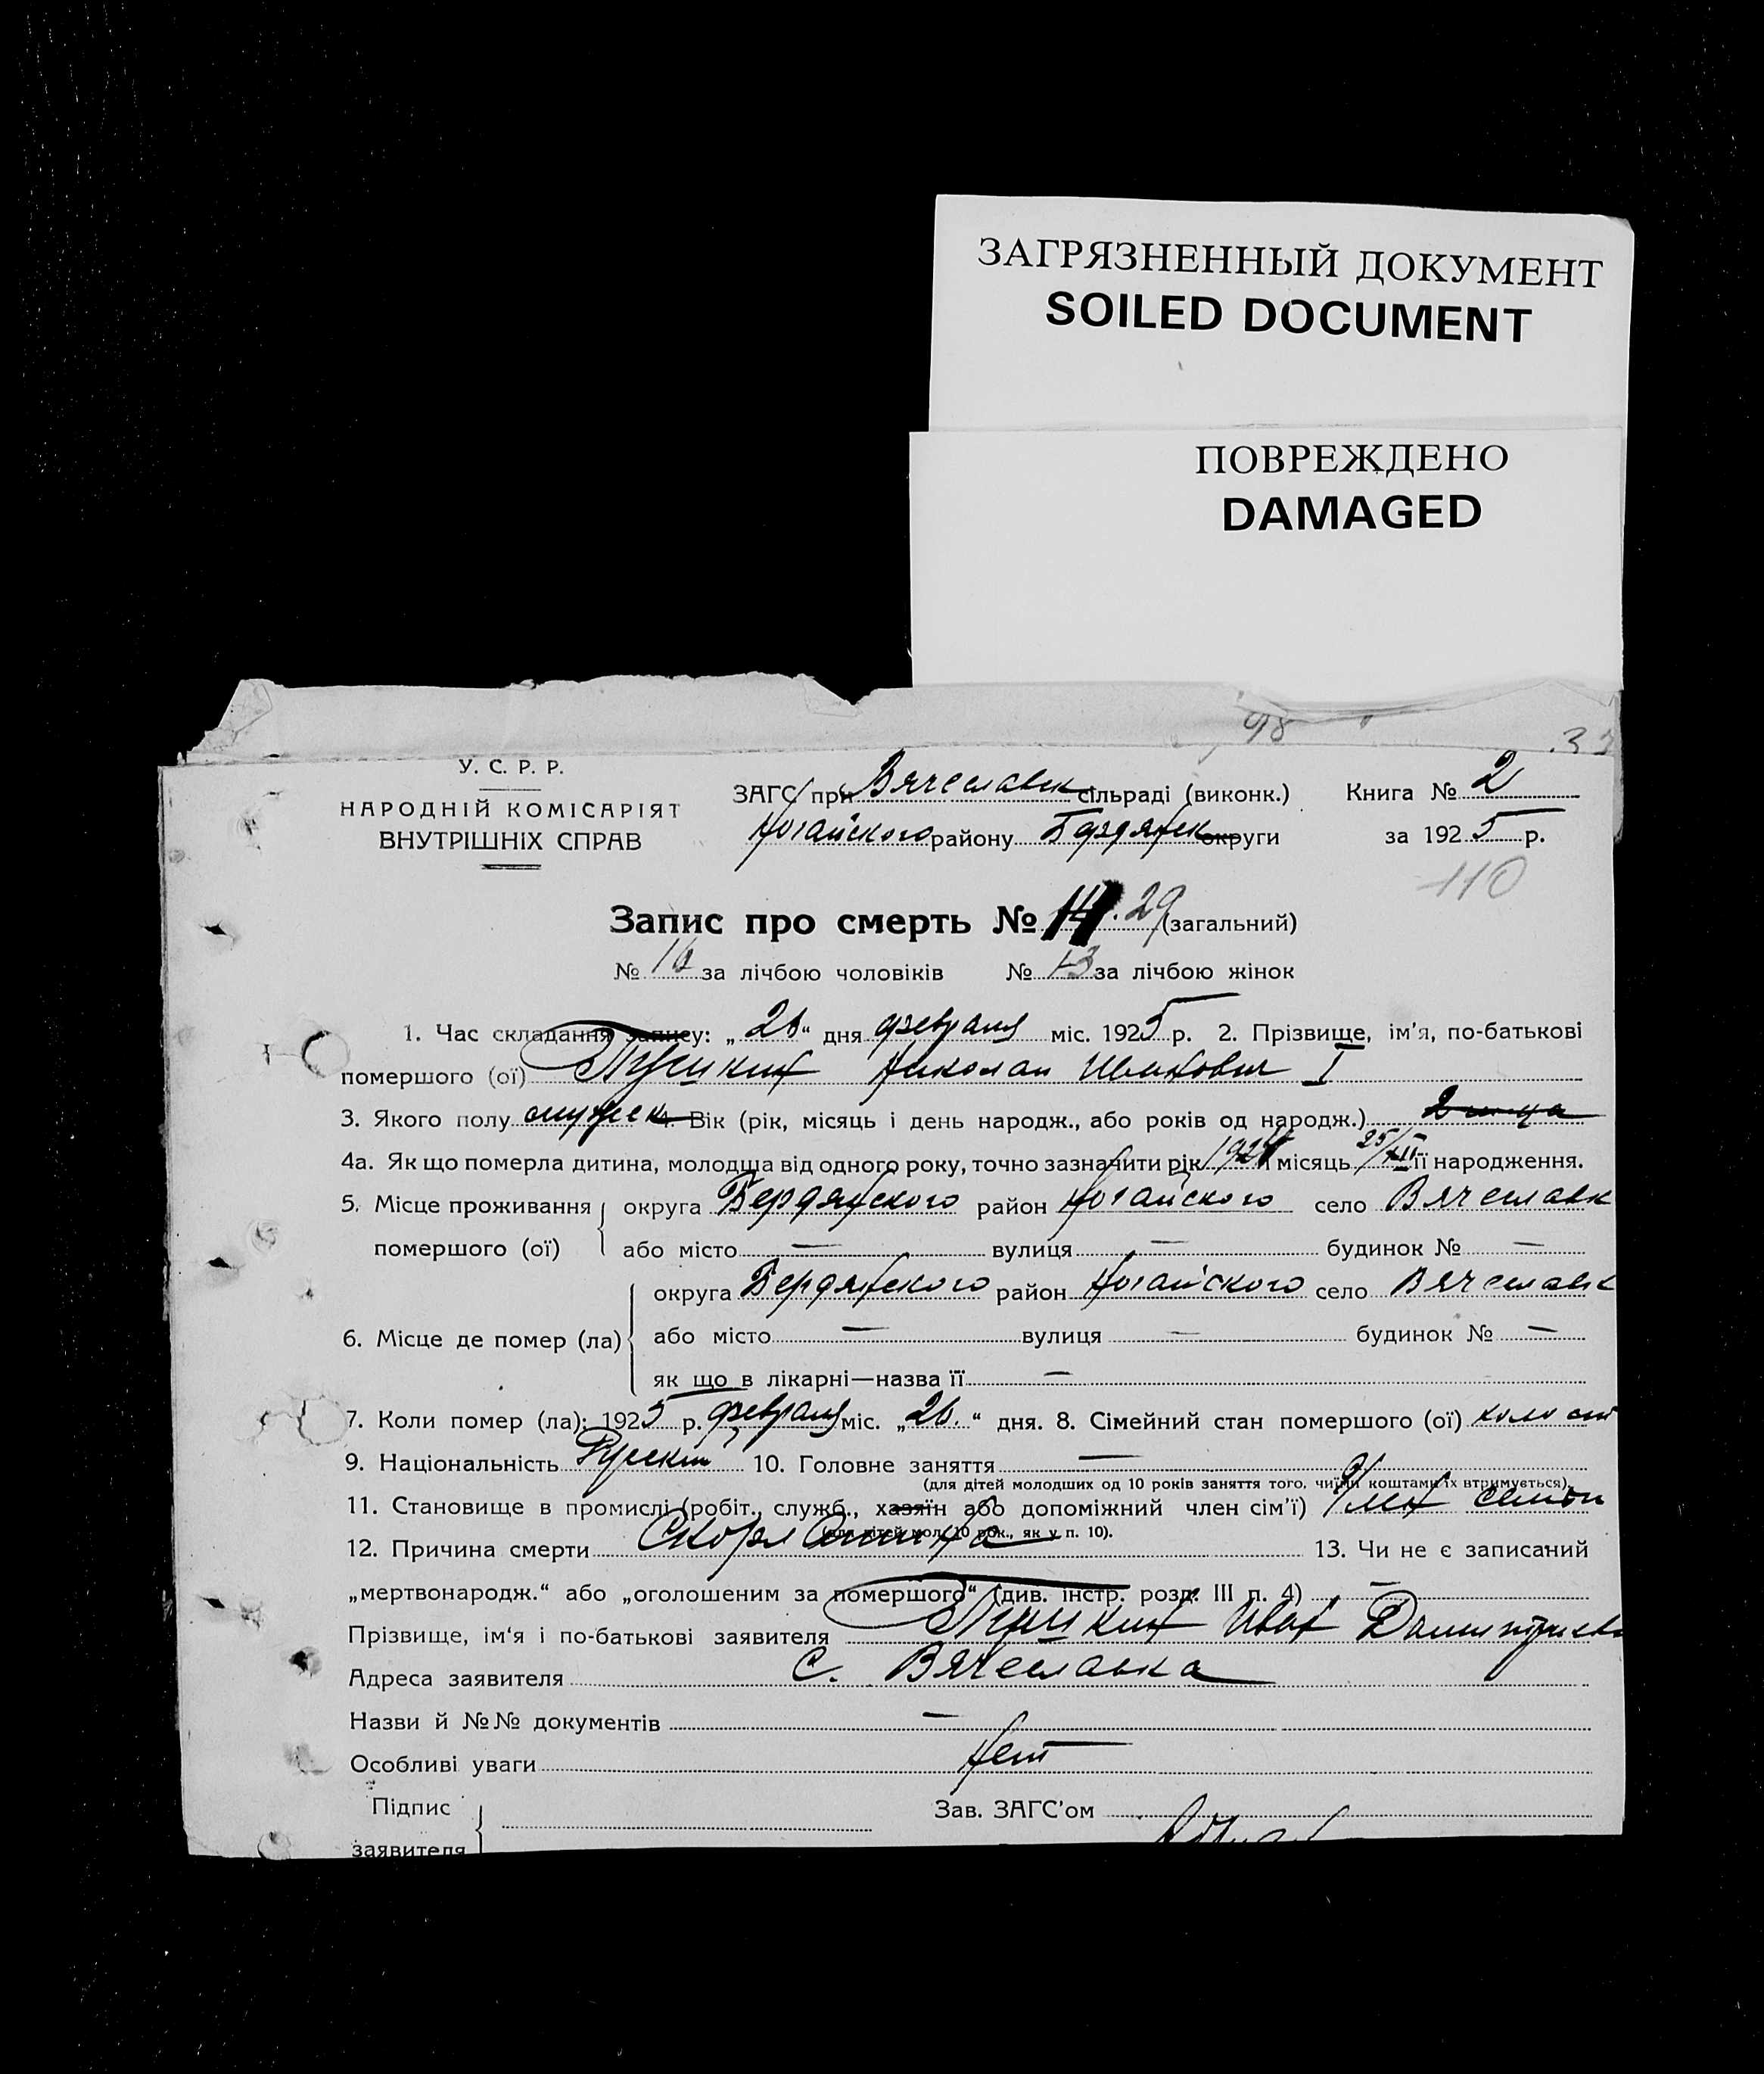 ЗАГРЯЗНЕННЫЙ ДОКУМЕНТ
SOILED DOCUMENT
ПОВРЕЖДЕНО
DAMAGED
98
У. С. Р. Р.
НАРОДНІЙ КОМІСАРІЯТ
ВНУТРІШНІХ СПРАВ
ЗАГС при Вячеславк сільраді (виконк.) Книга № 2
Ногайского району Бердянск округи за 1925 р.
110
Запис про смерть № 29 (загальний)
№ 16 за лічбою чоловіків № 13 за лічбою жінок
1. Час складання запису: „26“ дня февраля міс. 1925 р. 2. Прізвище, ім'я, по-батькові
помершого (ої) Николай Иванович I
3. Якого полу мужск 4. Вік (рік, місяць і день народж., або років од народж.)
4а. Як що померла дитина, молодша від одного року, точно зазначити рік 1924 місяць 25/XII її народження.
5. Місце проживання округа Бердянского район Ногайского село Вячеславк
помершого (ої) або місто — вулиця — будинок № —
округа Бердянского район Ногайского село Вячеславк
6. Місце де помер (ла) або місто — вулиця — будинок № —
як що в лікарні—назва її —
7. Коли помер (ла): 1925 р. февраля міс. „26.“ дня. 8. Сімейний стан помершого (ої) холост
9. Національність Русский 10. Головне заняття —
(для дітей молодших од 10 років заняття того, чиїми коштами їх втримується).
11. Становище в промислі (робіт., служб., хазяїн або допоміжний член сім'ї) Член семьи
(для дітей мол. 10 рок., як у п. 10).
12. Причина смерти Скорлатина 13. Чи не є записаний
„мертвонародж.“ або „оголошеним за помершого“ (див. інстр. розд. III п. 4) —
Прізвище, ім'я і по-батькові заявителя Иван
Адреса заявителя С. Вячеславка
Назви й №№ документів —
Особливі уваги Нет
Підпис Зав. ЗАГС'ом
заявителя